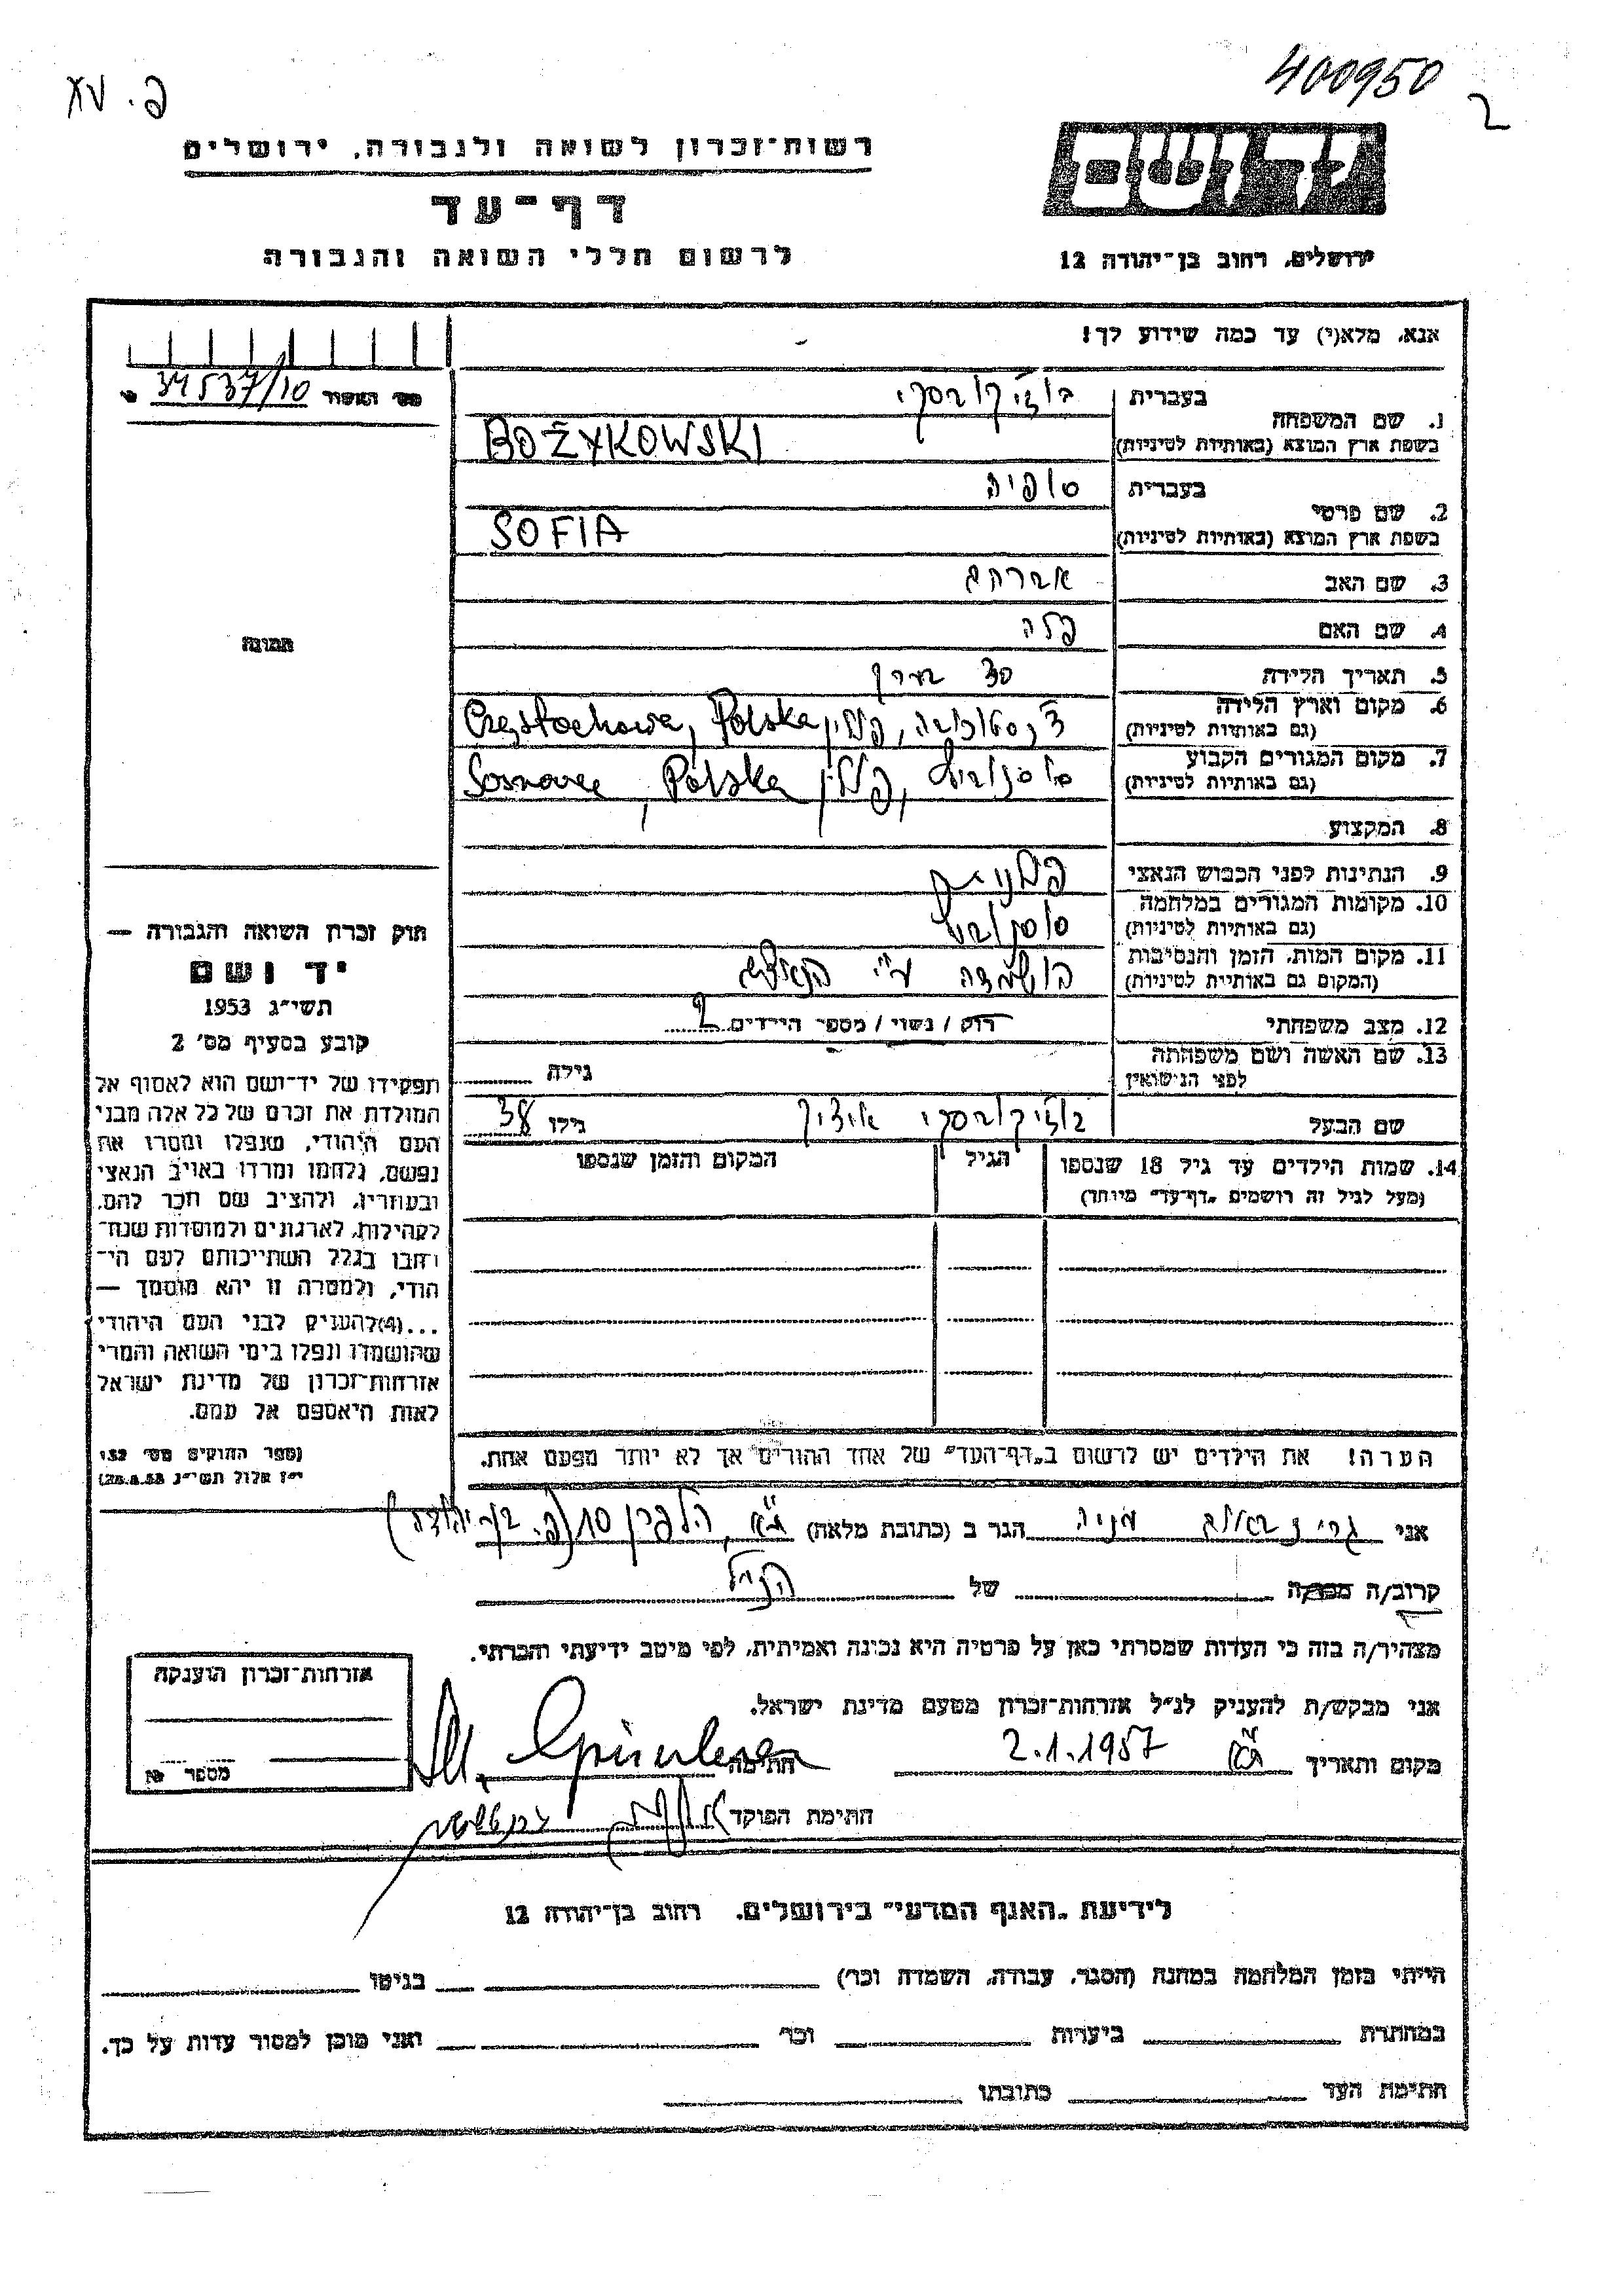 400950
2
פ. XV
יד ושם
ירושלים, רחוב בן־יהודה 12
רשות־זכרון לשואה ולגבורה, ירושלים
דף־עד
לרשום חללי השואה והגבורה
אנא, מלא(י) עד כמה שידוע לך!
מס׳ האשור 34537/10
1. שם המשפחה
בעברית בוז׳יקובסקי
בשפת ארץ המוצא (באותיות לטיניות) BOŻYKOWSKI
2. שם פרטי
בעברית סופיה
בשפת ארץ המוצא (באותיות לטיניות) SOFIA
3. שם האב אברהם
4. שם האם פלה
תמונה
5. תאריך הלידה 30 בערך
6. מקום וארץ הלידה
(גם באותיות לטיניות) צ׳נסטוכובה, פולין Częstochowa, Polska
7. מקום המגורים הקבוע
(גם באותיות לטיניות) סוסנוביץ, פולין Sosnovec, Polska
8. המקצוע
9. הנתינות לפני הכבוש הנאצי פולנית
10. מקומות המגורים במלחמה
(גם באותיות לטיניות) סוסנוביץ
11. מקום המות, הזמן והנסיבות
(המקום גם באותיות לטיניות) הושמדה ע״י הנאצים
12. מצב משפחתי רווק / נשוי / מספר הילדים 2
13. שם האשה ושם משפחתה
לפני הנישואין גילה
שם הבעל בוז׳יקובסקי אידק גילו 38
14. שמות הילדים עד גיל 18 שנספו הגיל המקום והזמן שנספו
(מעל לגיל זה רושמים „דף־עד״ מיוחד)
הערה! את הילדים יש לרשום ב„דף־העד״ של אחד ההורים אך לא יותר מפעם אחת.
חוק זכרון השואה והגבורה —
יד ושם
תשי״ג 1953
קובע בסעיף מס׳ 2
תפקידו של יד־ושם הוא לאסוף אל
המולדת את זכרם של כל אלה מבני
העם היהודי, שנפלו ומסרו את
נפשם, נלחמו ומרדו באויב הנאצי
ובעוזריו, ולהציב שם וזכר להם,
לקהילות, לארגונים ולמוסדות שנח־
רחבו בגלל השתייכותם לעם הי־
הודי, ולמטרה זו יהא מוסמך —
...(4)להעניק לבני העם היהודי
שהושמדו ונפלו בימי השואה והמרי
אזרחות־זכרון של מדינת ישראל
לאות היאספם אל עמם.
(ספר החוקים מס׳ 132
י״ז אלול תשי״ג 28.8.53)
אני גרינבאום מניה הגר ב (כתובת מלאה) ת״א, הלפרן 10 (פ. בן יהודה)
קרוב/ה מכר/ה של הנ״ל
מצהיר/ה בזה כי העדות שמסרתי כאן על פרטיה היא נכונה ואמיתית, לפי מיטב ידיעתי והכרתי.
אני מבקש/ת להעניק לנ״ל אזרחות־זכרון מטעם מדינת ישראל.
מקום ותאריך ת״א 2.1.1957 חתימה
חתימת הפוקד
אזרחות־זכרון הוענקה
מספר
לידיעת „האגף המדעי״ בירושלים, רחוב בן־יהודה 12
הייתי בזמן המלחמה במחנה (הסגר, עבודה, השמדה וכו׳) בגיטו
במחתרת ביערות וכו׳ ואני מוכן למסור עדות על כך.
חתימת העד כתובתו